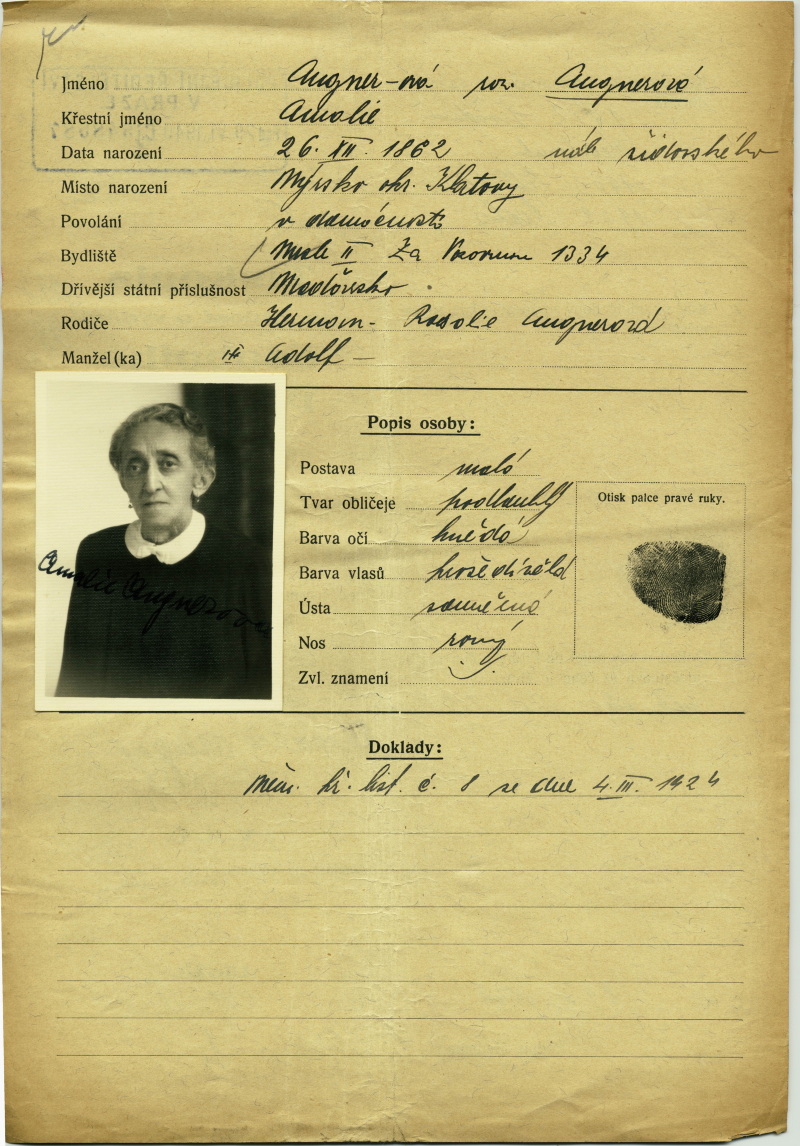 Jméno Augner-ová roz. Augnerová
Křestní jméno Amalie
Data narození 26. XII. 1862 náb židovského
Místo narození Nýrsko okr. Klatovy
Povolání v domácnosti
Bydliště II Za 1334
Dřívější státní příslušnost
Rodiče Herman - Rosalie Augnerová
Manžel (ka) Adolf -
Popis osoby:
Postava malá
Tvar obličeje podlouhlý
Otisk palce pravé ruky.
Barva očí hnědá
Barva vlasů
Amalie Augnerova
Ústa souměrná
Nos rovný
Zvl. znamení
Doklady:
list. č. 8 ze dne 4. III. 1924